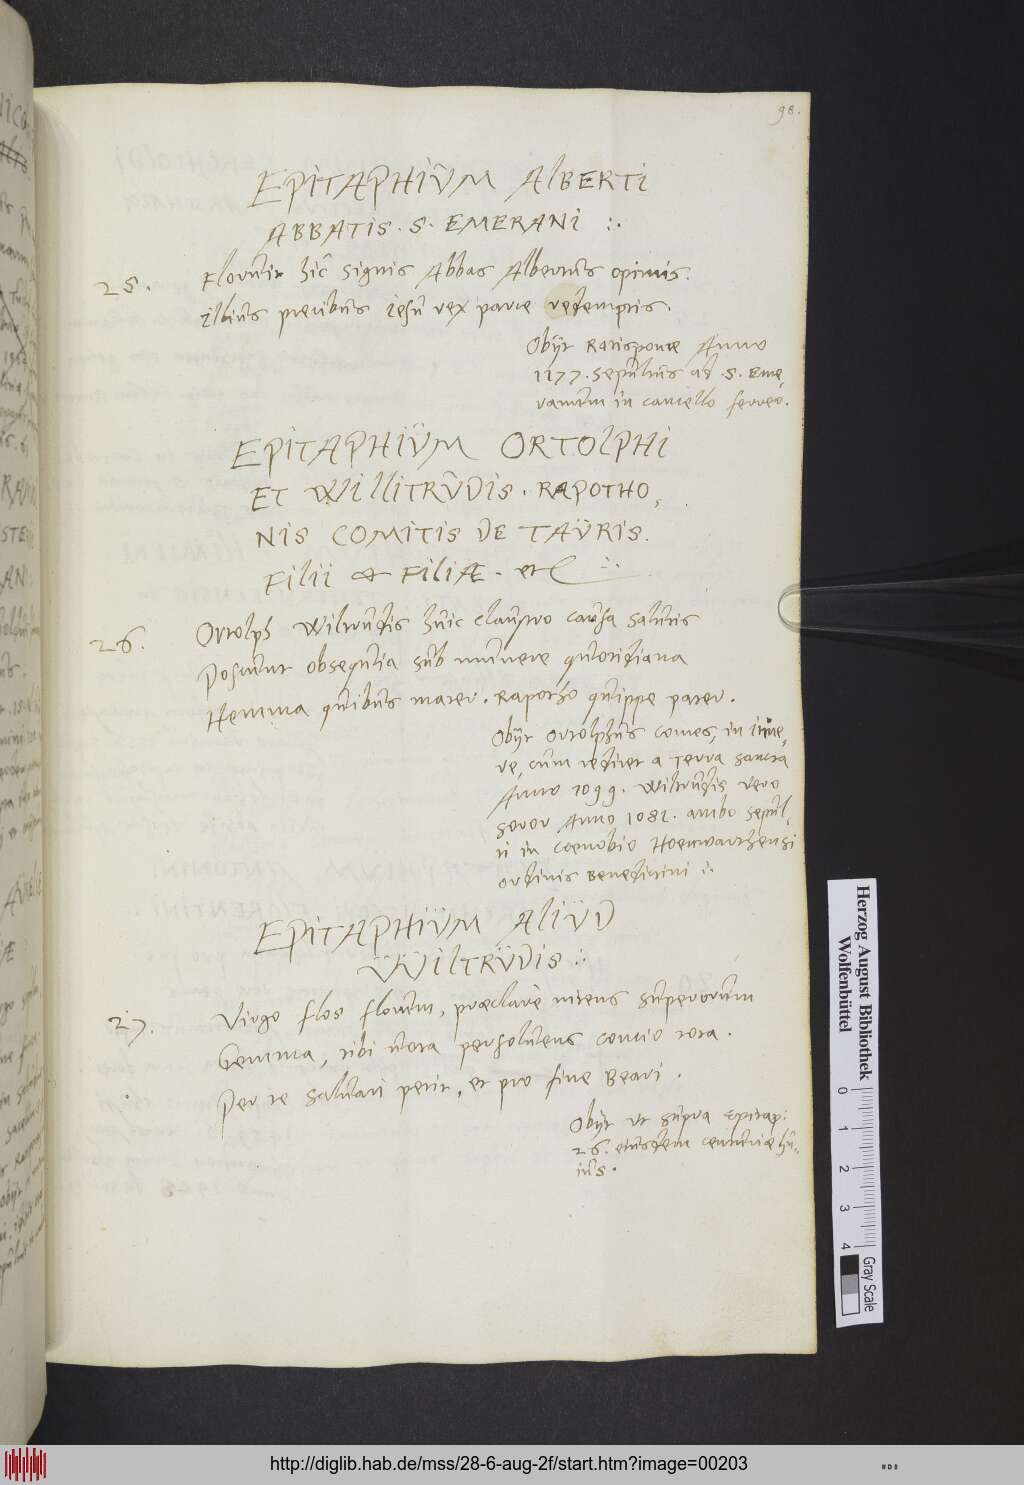 98.
EPITAPHIUM ALBERTI
ABBATIS. S. EMERANI :.
25. Floruit hic signis Abbas Albertus opimis.
illius precibus iesu rex parce redemptis.
Obijt Ratisponæ Anno
1177. sepultus ad .S. Eme,
ramum in cancello ferreo.
EPITAPHIUM ORTOLPHI
ET WILLITRUDIS. RAPOTHO,
NIS COMITIS DE TAURIS.
FILII & FILIÆ. etc :.
26. Ortolph Wiltrudis huic claustro causa salutis
Poscunt obsequia sub munere quotidiana
Hemma quibus mater. Rapotho quippe pater.
Obijt Ortolphus comes, in itine,
re, cum rediret a Terra sancta
Anno 1099. Wiltrudis vero
soror Anno 1081. ambo sepul,
ti in coenobio Hoenwarthensi
ordinis Benedictini :.
EPITAPHIUM ALIUD
WILTRUDIS :.
27. Virgo flos florum, præclarè nitens superorum
Gemma, tibi vota persolvens concio tota.
Per te salvari petit, et pro fine Beari.
Obijt ut supra Epitap:
26. eiusdem centuriæ hu,,
ius.
Herzog August Bibliothek
Wolfenbüttel
0 1 2 3 4
Gray Scale
http://diglib.hab.de/mss/28-6-aug-2f/start.htm?image=00203